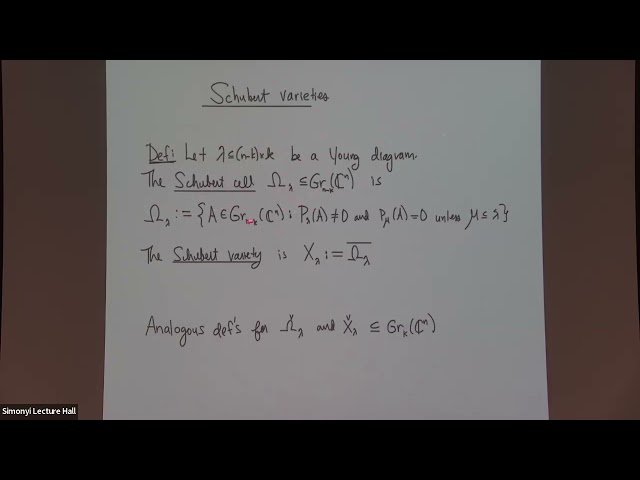 Schubert varieties
Def: Let λ⊆(n-k)×k be a Young diagram.
The Schubert cell Ω_λ ⊆ Gr_{n-k}(ℂⁿ) is
Ω_λ := {A ∈ Gr_{n-k}(ℂⁿ) : P_λ(A) ≠ 0 and P_μ(A) = 0 unless μ ⊆ λ}
The Schubert variety is X_λ := \overline{Ω_λ}
Analogous def's for Ω̌_λ and X̌_λ ⊆ Gr_k(ℂⁿ)
Simonyi Lecture Hall